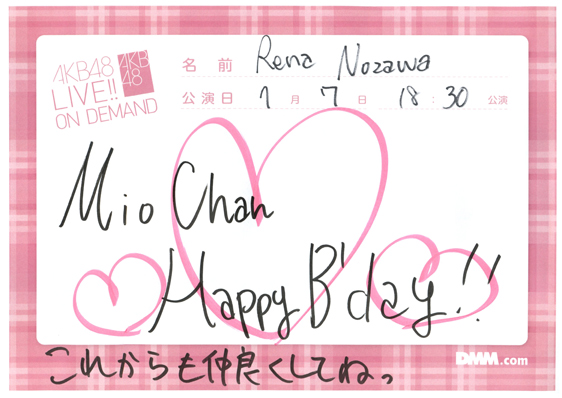 AKB48
LIVE!!
ON DEMAND
AKB
48
名前 Rena Nozawa
公演日 1月7日 18:30 公演
Mio Chan
Happy B'day!!
これからも仲良くしてね。
DMM.com